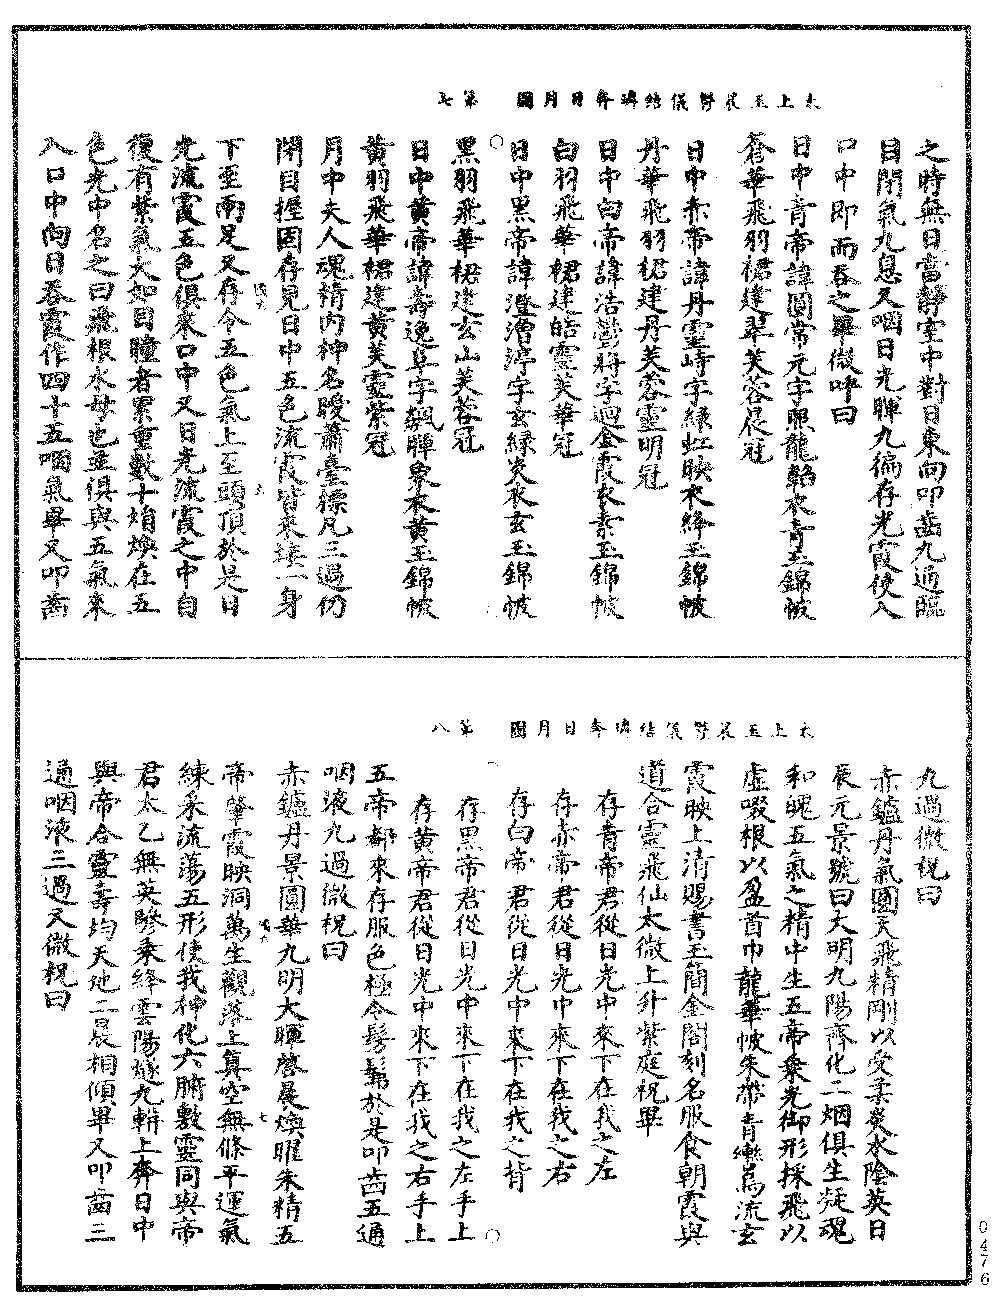 太上玉晨鬱儀結璘奔日月圖　第七
之時無日當靜室中對日東向叩齒九通臨
目閉氣九息又咽日光暉九徧存光霞使入
口中即而吞之畢微呼曰
日中青帝諱圓常元字照龍韜衣青玉錦帔
蒼華飛羽裙建翠芙蓉晨冠
日中赤帝諱丹靈峙字綠虹映衣絳玉錦帔
丹華飛羽裙建丹芙蓉靈明冠
日中白帝諱浩鬱將字迴金霞衣素玉錦帔
白羽飛華裙建皓靈芙華冠
日中黑帝諱澄渟字玄綠炎衣玄玉錦帔
黑羽飛華裙建玄山芙蓉冠
日中黃帝諱壽逸阜字飆暉象衣黃玉錦帔
黃羽飛華裙建黃芙靈紫冠
月中夫人魂精內神名曖蕭臺摽凡三過仍
閉目握固存見日中五色流霞皆來接一身
下至兩足又存令五色氣上至頭頂於是日
光流霞五色俱來口中又日光流霞之中自
復有紫氣大如目瞳者累重數十焰煥在五
色光中名之曰飛根水母也並俱與五氣來
入口中向日吞霞作四十五咽氣畢又叩齒
太上玉晨鬱儀結璘奔日月圖　第八
九過微祝曰
赤鑪丹氣圓天飛精剛以受柔炎水陰英日
辰元景號曰大明九陽齊化二烟俱生凝魂
和魄五氣之精中生五帝乘光御形採飛以
虛啜根以盈首巾龍華帔朱帶青轡萬流玄
霞映上清賜書玉簡金閣刻名服食朝霞與
道合靈飛仙太微上升紫庭祝畢
存青帝君從日光中來下在我之左
存赤帝君從日光中來下在我之右
存白帝君從日光中來下在我之背
存黑帝君從日光中來下在我之左手上
存黃帝君從日光中來下在我之右手上
五帝都來存服色極令髣髴於是叩齒五通
咽液九過微祝曰
赤鑪丹景圓華九明大暉啓晨煥曜朱精五
帝肇霞映洞萬生觀落上真空無條平運氣
練釆流蕩五形使我神化六腑敷靈同與帝
君太乙無英驂乘絳雲陽燧九軿上奔日中
與帝合靈壽均天地二晨相傾畢又叩齒三
通咽液三過又微祝曰
0476